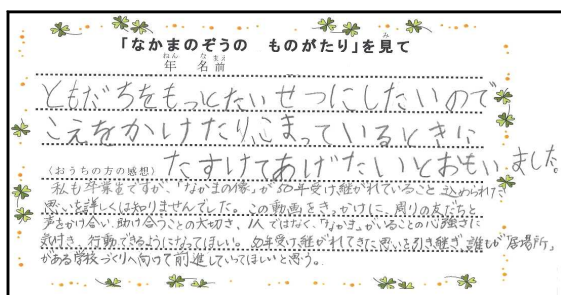 「なかまのぞうの ものがたり」を見て
年 名前
ともだちをもっとたいせつにしたいので
こえをかけたり、こまっているときに
たすけてあげたいとおもいました。
〈おうちの方の感想〉
私も卒業生ですが、「なかまの像」が50年受け継がれていること、込められた
思いを詳しくは知りませんでした。この動画をきっかけに、周りの友だちと
声をかけ合い、助け合うことの大切さ、1人ではなく、「なかま」がいることの心強さに
気付き、行動できるようになってほしい。50年受け継がれてきた思いを引き継ぎ、誰もが「居場所」
がある学校づくりへ向けて前進していってほしいと思う。